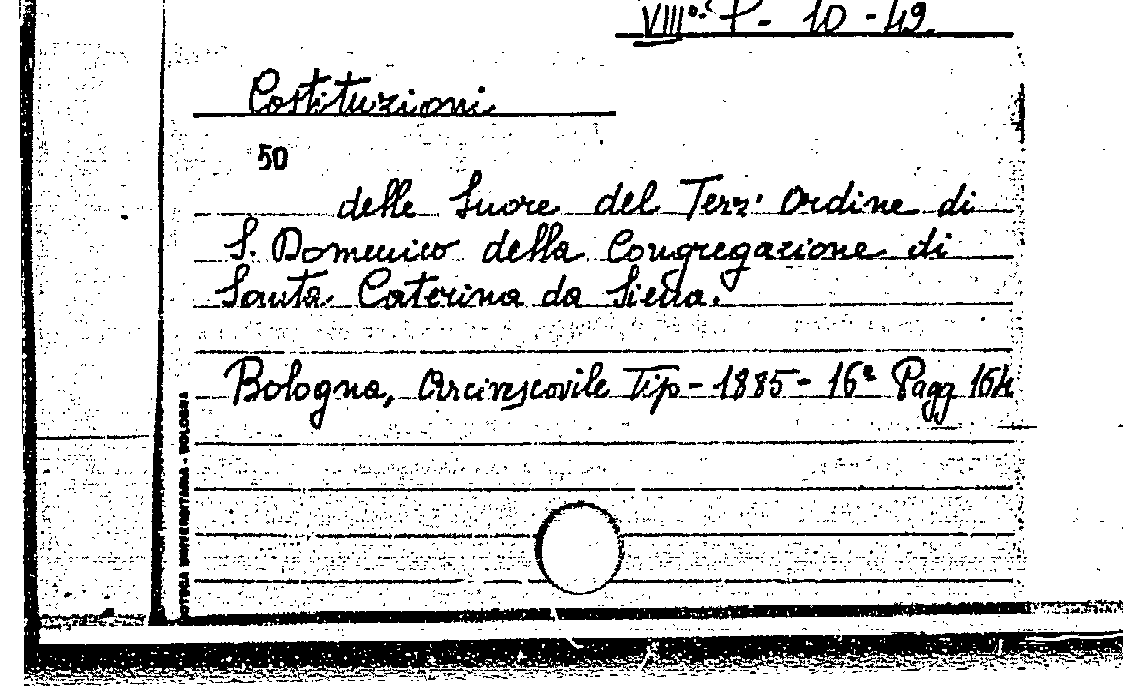 VIIIº.ᶜ P - 10 - 49.
Costituzioni
50
delle Suore del Terz' Ordine di
S. Domenico della Congregazione di
Santa Caterina da Siena.
Bologna, Arcivescovile Tip - 1885 - 16º Pagg 164
OTECA UNIVERSITARIA - BOLOGNA